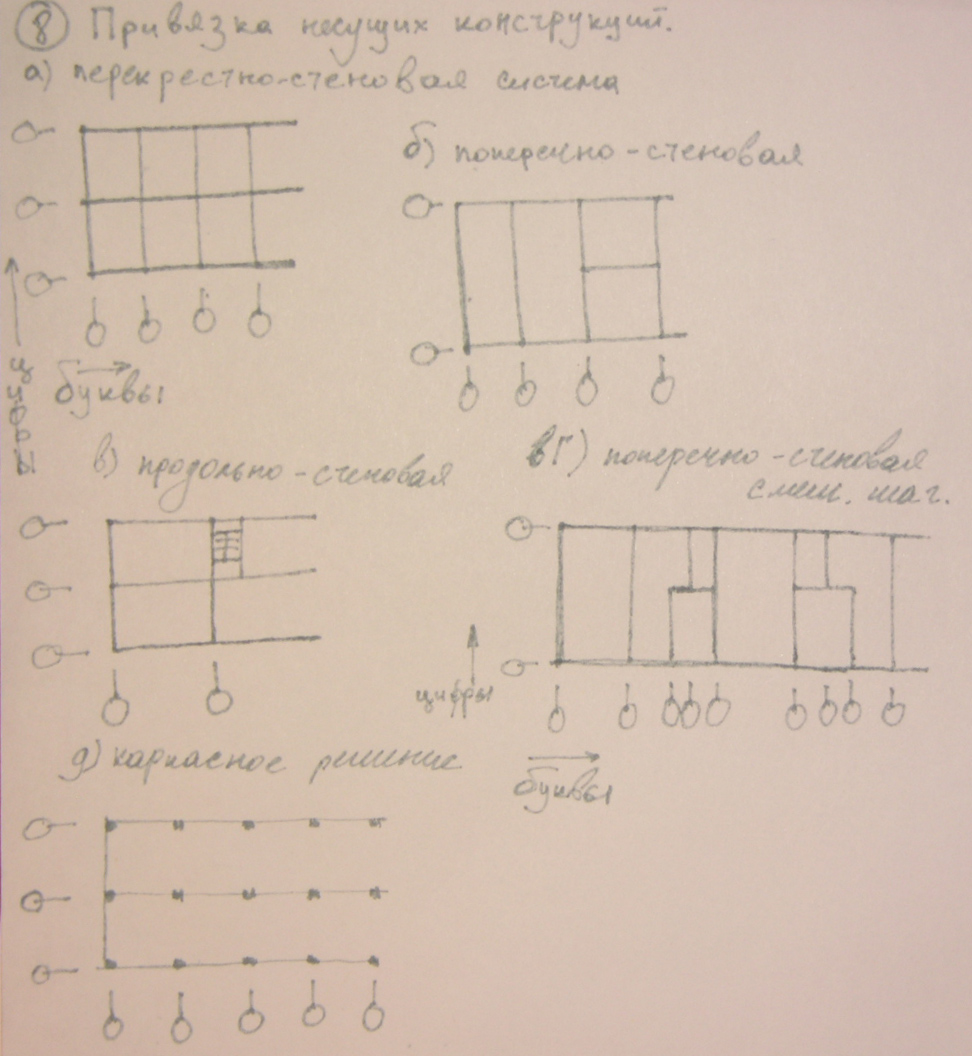 8 Привязка несущих конструкций.
а) перекрестно-стеновая система
б) поперечно-стеновая
цифры
буквы
в) продольно-стеновая
г) поперечно-стеновая
смеш. шаг.
цифры
д) каркасное решение
буквы